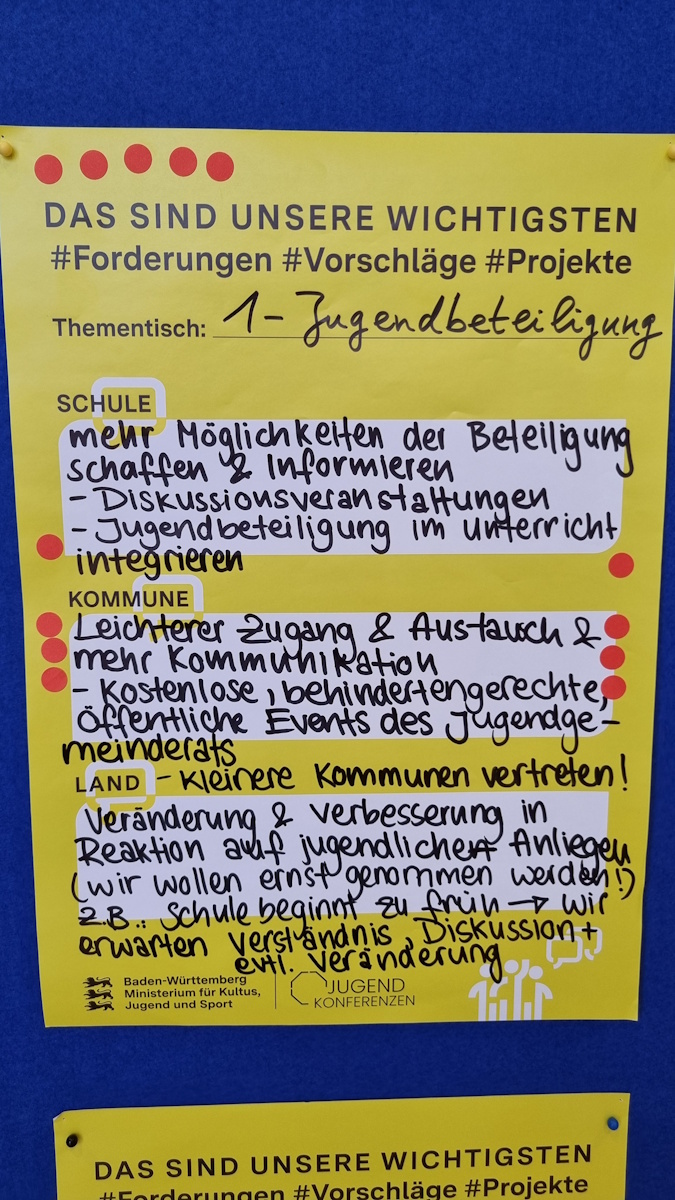 DAS SIND UNSERE WICHTIGSTEN
#Forderungen #Vorschläge #Projekte
Thementisch: 1- Jugendbeteiligung
SCHULE
mehr Möglichkeiten der Beteiligung
schaffen & Informieren
- Diskussionsveranstaltungen
- Jugendbeteiligung im unterricht
integrieren
KOMMUNE
Leichterer Zugang & Austausch &
mehr Kommunikation
- Kostenlose, behindertengerechte,
Öffentliche Events des Jugendge-
meinderats
LAND - Kleinere Kommunen vertreten!
Veränderung & Verbesserung in
Reaktion auf jugendliche Anliegen
(wir wollen ernst genommen werden!)
z.B.: Schule beginnt zu früh → wir
erwarten Verständnis, Diskussion +
evtl. Veränderung
Baden-Württemberg
Ministerium für Kultus,
Jugend und Sport
JUGEND
KONFERENZEN
DAS SIND UNSERE WICHTIGSTEN
#Forderungen #Vorschläge #Projekte